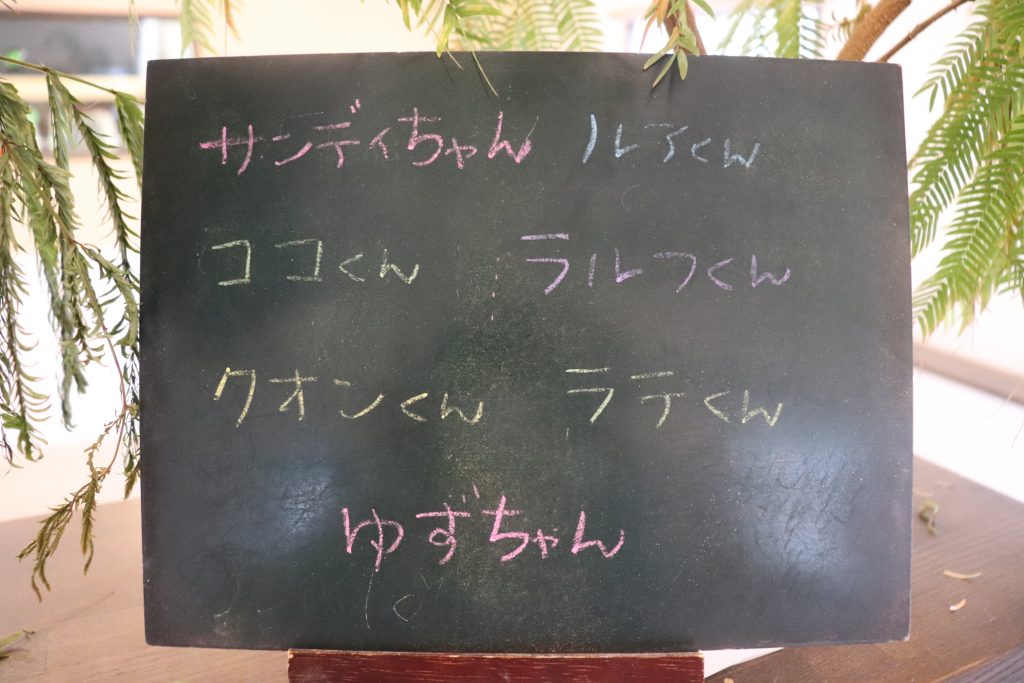 サンディちゃん ルアくん
ココくん ラルフくん
クオンくん ラテくん
ゆずちゃん